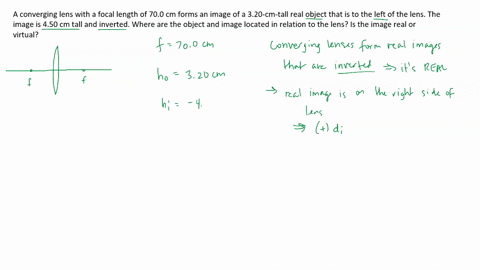 A converging lens with a focal length of 70.0 cm forms an image of a 3.20-cm-tall real object that is to the left of the lens. The
image is 4.50 cm tall and inverted. Where are the object and image located in relation to the lens? Is the image real or
virtual?
f = 70.0 cm
h₀ = 3.20 cm
hᵢ = -4.
f
f
Converging lenses form real images
that are inverted ⇒ it's REAL
→ real image is on the right side of
lens
⇒ (+) dᵢ